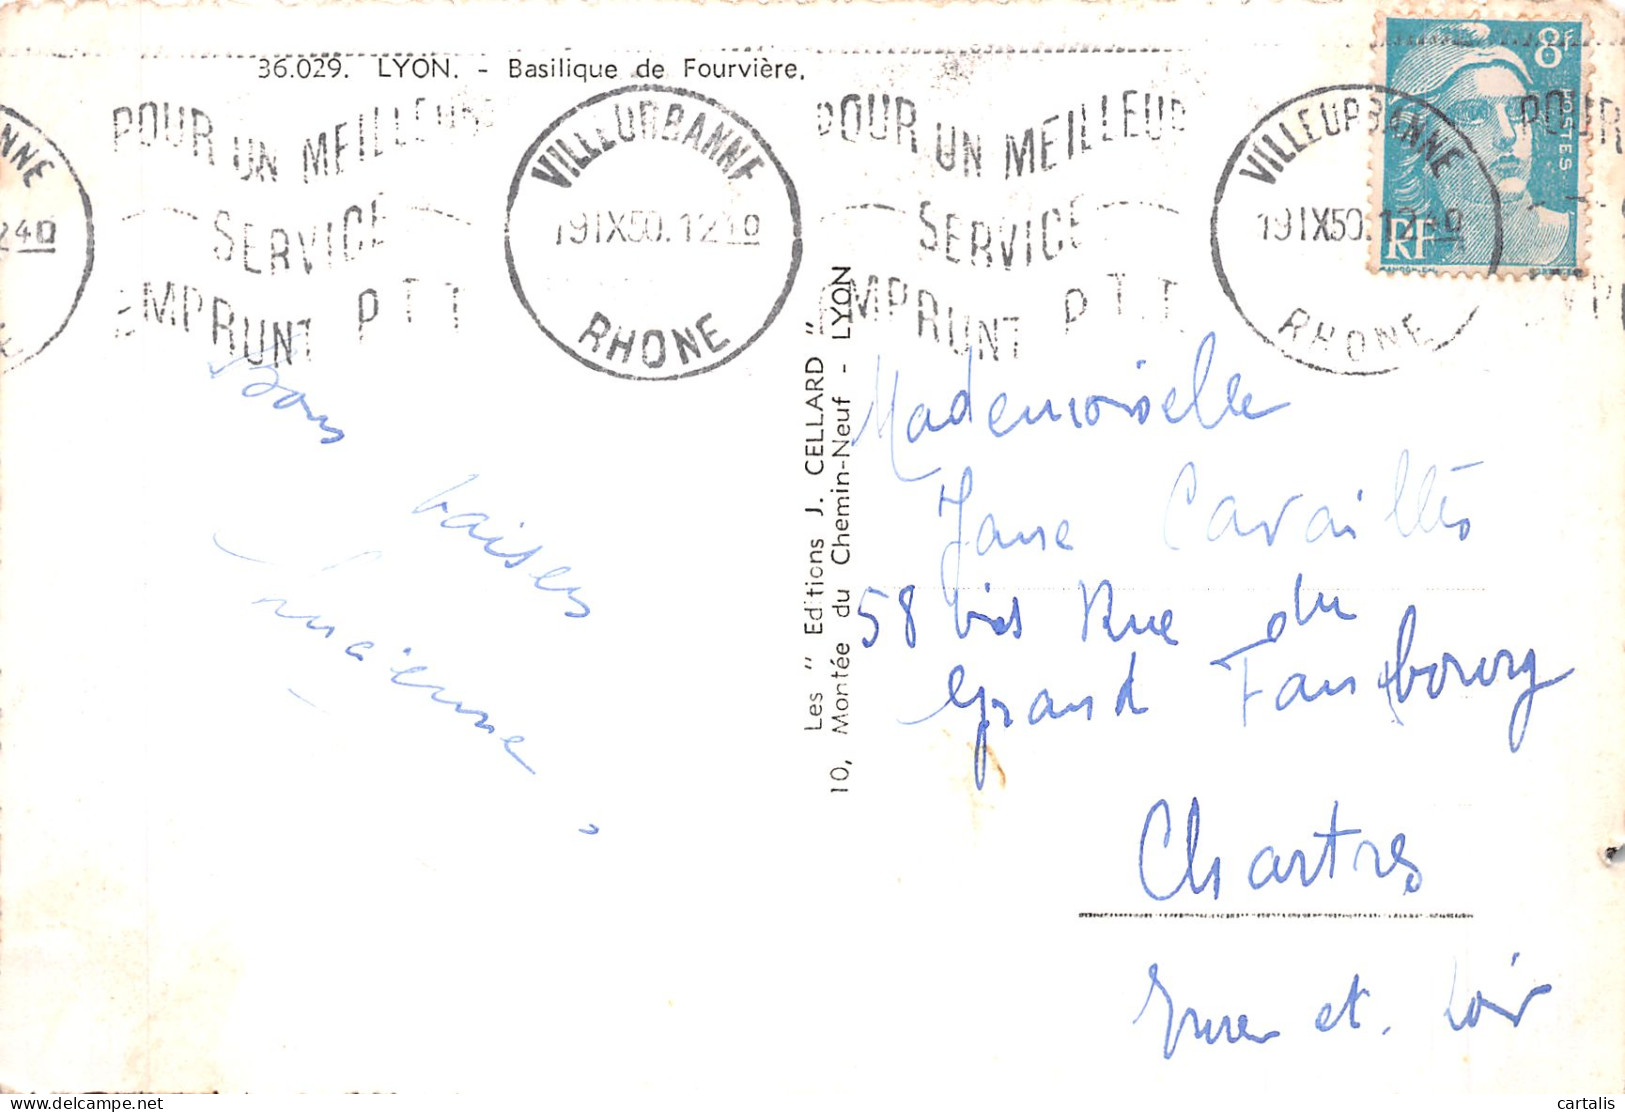 36.029. LYON. - Basilique de Fourvière.
POUR UN MEILLEUR
SERVICE
EMPRUNT PTT
VILLEURBANNE
19 IX 50. 12 40
RHONE
POUR UN MEILLEUR
SERVICE
EMPRUNT P.T.T.
VILLEURBANNE
19 IX 50. 12 40
RHONE
8F
POSTES
RF
Bons
baisers
Lucienne
Les "Editions J. CELLARD"
10, Montée du Chemin-Neuf - LYON
Mademoiselle
Jane Cavaillès
58 bis Rue du
Grand Faubourg
Chartres
Eure et. Loir
cartalis